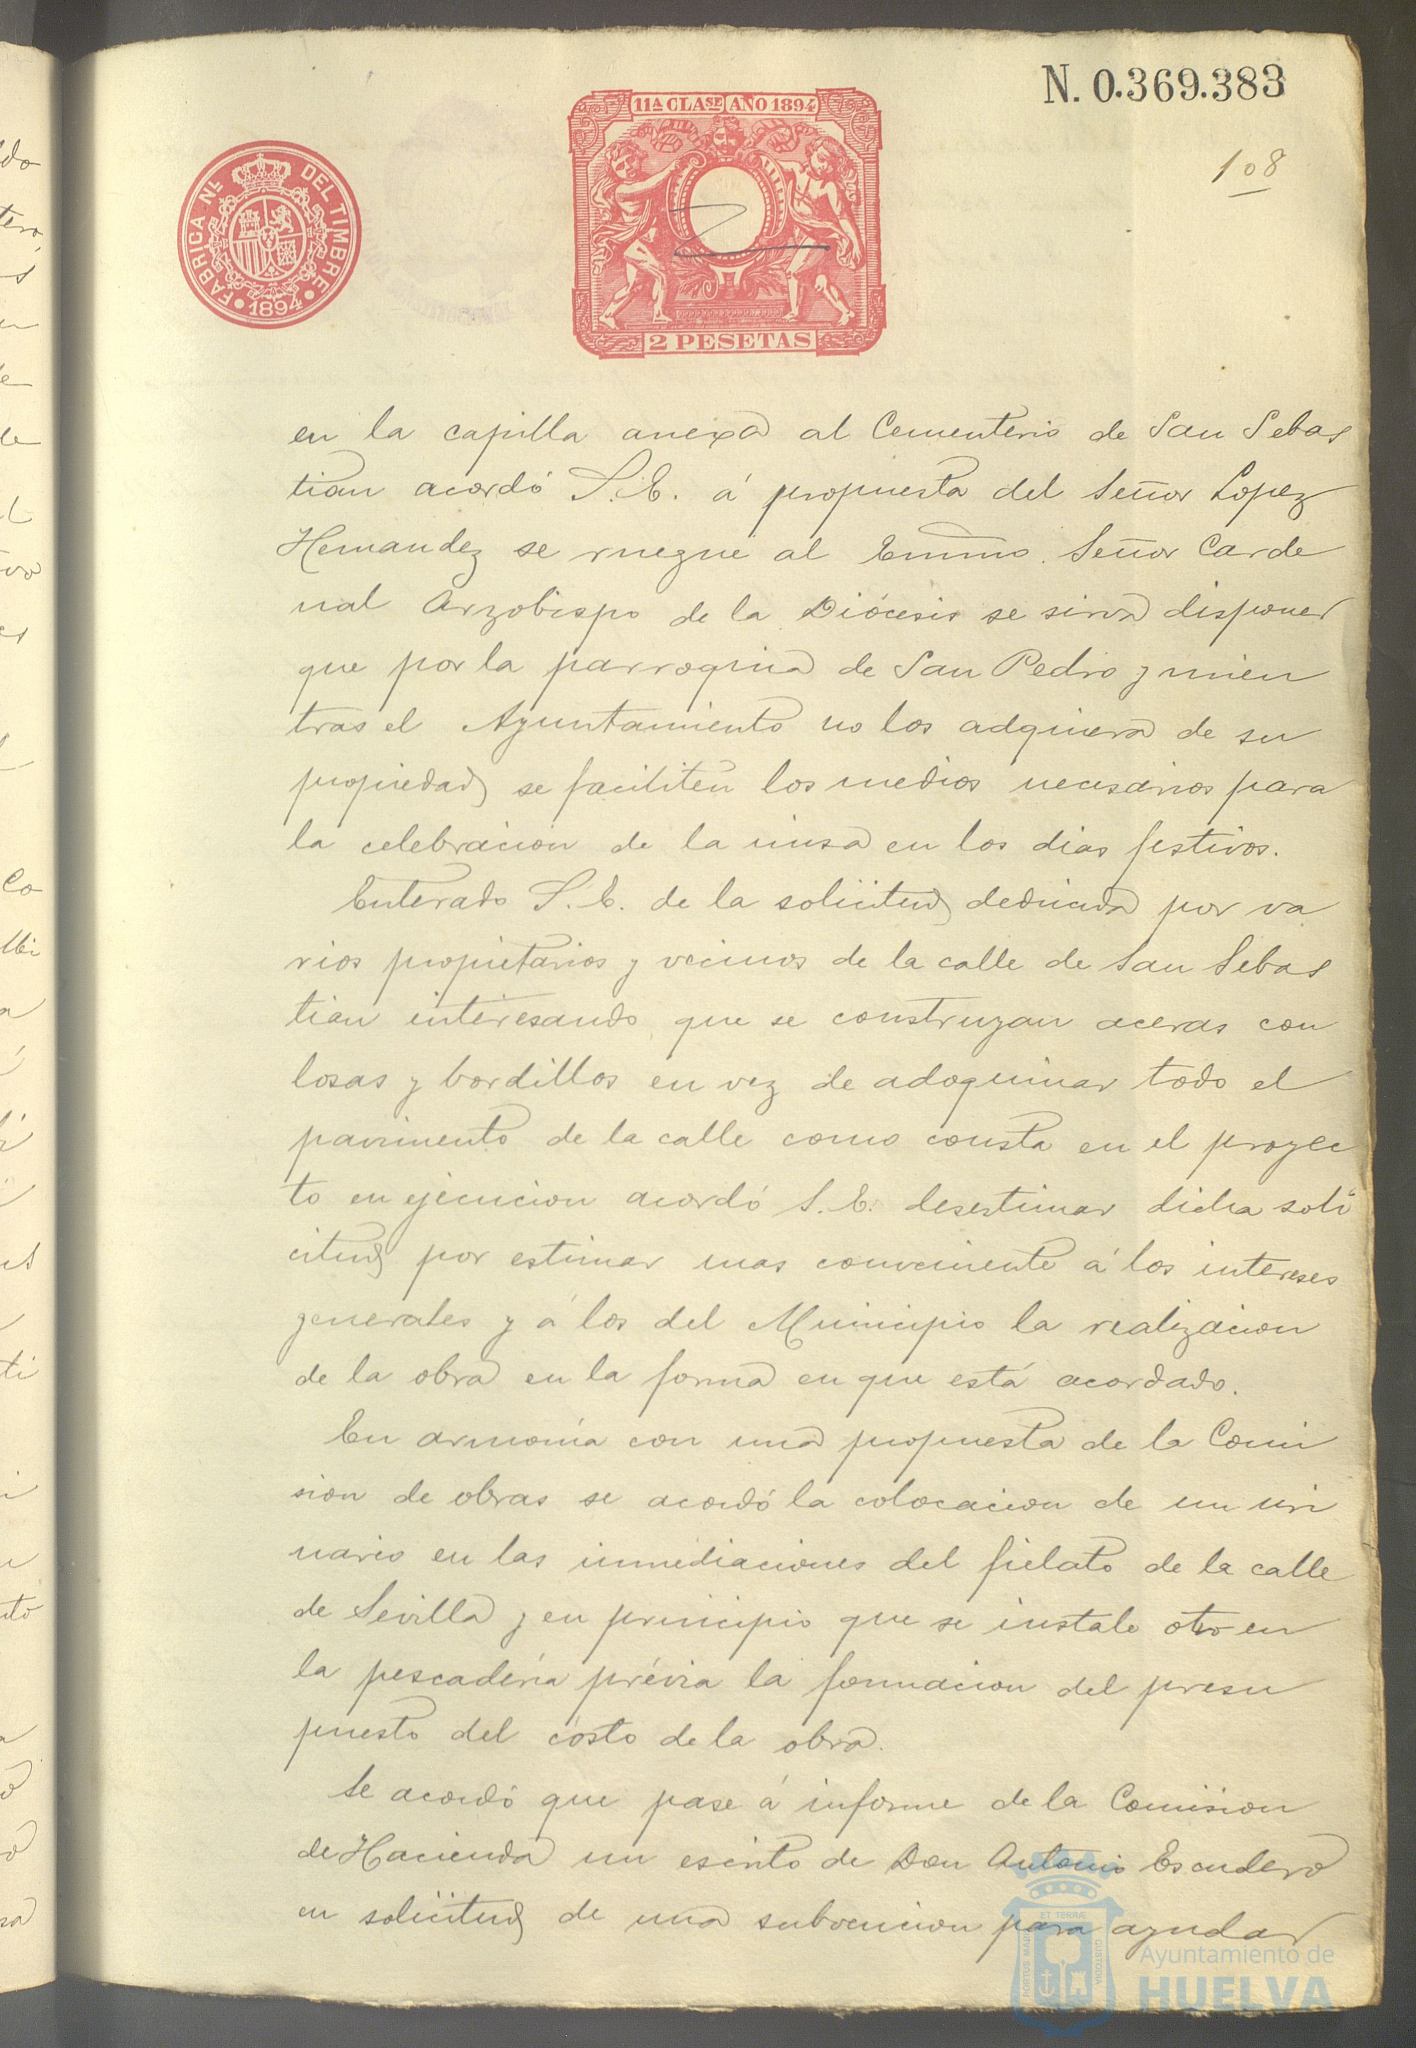 N. 0.369.383
11ª CLASE AÑO 1894
FÁBRICA NL DEL TIMBRE
1894
2 PESETAS
108
en la capilla anexa al Cementerio de San Sebas
tian acordó S.E. á propuesta del Señor Lopez
Hernandez se ruegue al Emmo. Señor Carde
nal Arzobispo de la Diócesis se sirva disponer
que por la parroquia de San Pedro y mien
tras el Ayuntamiento no los adquiera de su
propiedad se faciliten los medios necesarios para
la celebracion de la misa en los dias festivos.
Enterado S.E. de la solicitud deducida por va
rios propietarios y vecinos de la calle de San Sebas
tian interesando que se construyan aceras con
losas y bordillos en vez de adoquinar todo el
pavimento de la calle como consta en el proyec
to en ejecucion acordó S.E. desestimar dicha soli
citud por estimar mas conveniente á los intereses
generales y á los del Municipio la realizacion
de la obra en la forma en que está acordado.
En armonía con una propuesta de la Comi
sion de obras se acordó la colocacion de un uri
nario en las inmediaciones del fielato de la calle
de Sevilla y en principio que se instale otro en
la pescadería prévia la formacion del presu
puesto del costo de la obra.
Se acordó que pase á informe de la Comision
de Hacienda un escrito de Don Antonio Escudero
en solicitud de una subvencion para ayudar
PORTUS MARIS ET TERRÆ CUSTODIA
Ayuntamiento de
HUELVA